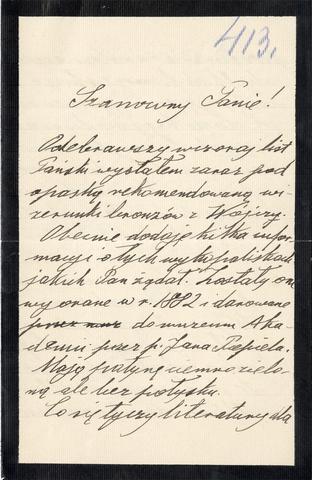 413.
Szanowny Panie!
Odebrawszy wczoraj list
Pański wysłałem zaraz pod
opaską rekomendowaną wi-
zerunki bronzów z Wójczy.
Obecnie dodaję kilka infor-
macyi o tych wykopaliskach
jakich Pan żądał. Zostały one
wyorane w r. 1882 i darowane
przez mnie do muzeum Aka-
demii przez p. Jana Popiela.
Mają patynę ciemno zielo-
ną ale bez połysku.
Co się tyczy literatury dla